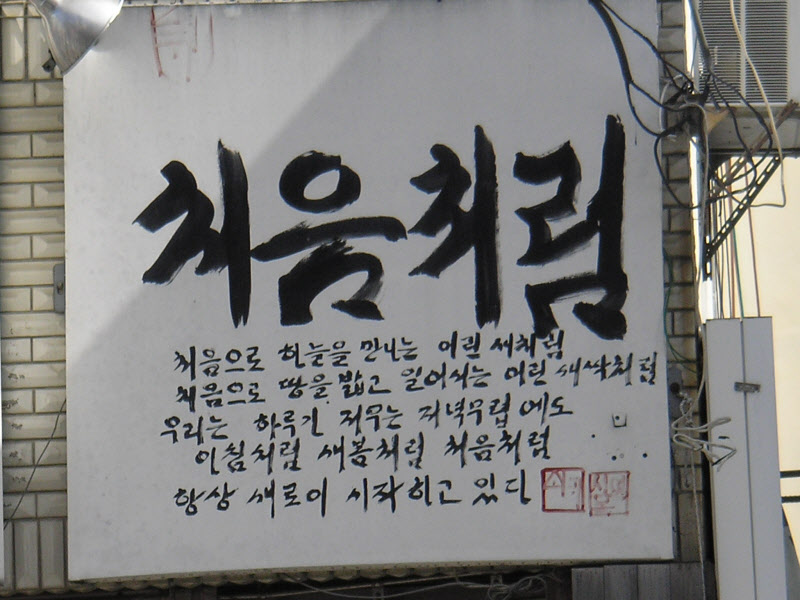 처음처럼
처음으로 하늘을 만나는 어린 새처럼
처음으로 땅을 밟고 일어서는 어린 새싹처럼
우리는 하루가 저무는 저녁무렵에도
아침처럼 새봄처럼 처음처럼
항상 새로이 시작하고 있다